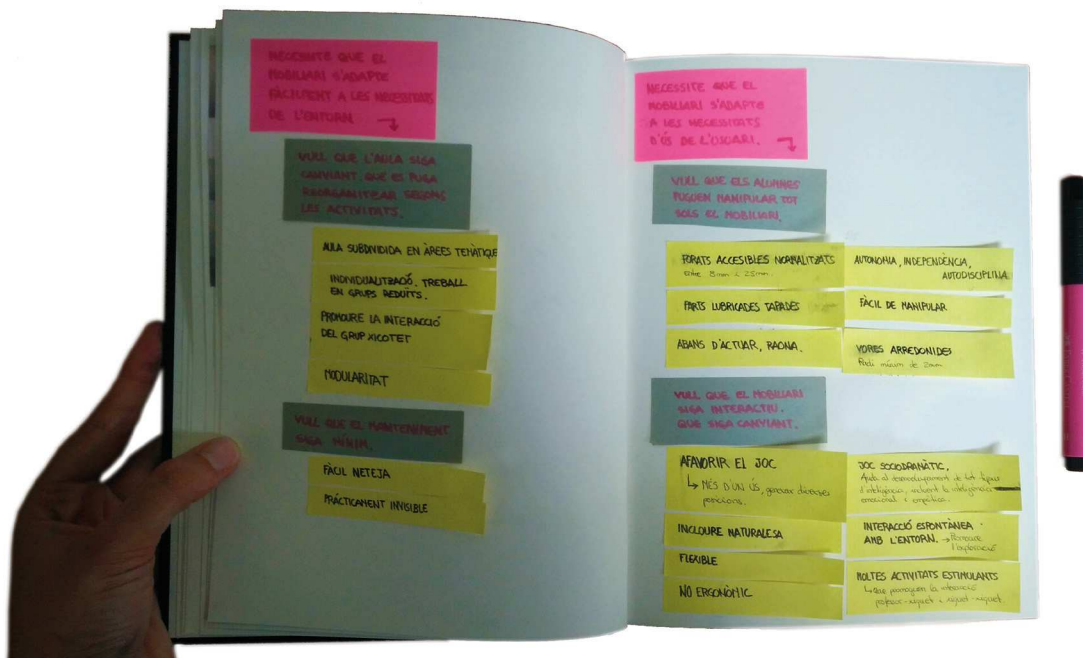 NECESSITE QUE EL
MOBILIARI S'ADAPTE
FÀCILMENT A LES NECESSITATS
DE L'ENTORN
VULL QUE L'AULA SIGA
CANVIANT, QUE ES PUGA
REORGANITZAR SEGONS
LES ACTIVITATS.
AULA SUBDIVIDIDA EN ÀREES TEMÀTIQUE
INDIVIDUALITZACIÓ. TREBALL
EN GRUPS REDUÏTS.
PROMOURE LA INTERACCIÓ
DEL GRUP XICOTET
MODULARITAT
VULL QUE EL MANTENIMENT
SIGA MÍNIM.
FÀCIL NETEJA
PRÀCTICAMENT INVISIBLE
NECESSITE QUE EL
MOBILIARI S'ADAPTE
A LES NECESSITATS
D'ÚS DE L'USUARI.
VULL QUE ELS ALUMNES
PUGUEN MANIPULAR TOT
SOLS EL MOBILIARI.
FORATS ACCESIBLES NORMALITZATS
entre 8mm i 25mm
AUTONOMIA, INDEPENDÈNCIA,
AUTODISCIPLINA
PARTS LUBRICADES TAPADES
FÀCIL DE MANIPULAR
ABANS D'ACTUAR, RAONA.
VORES ARREDONIDES
Radi mínim de 2mm
VULL QUE EL MOBILIARI
SIGA INTERACTIU.
QUE SIGA CANVIANT.
AFAVORIR EL JOC
↳ MÉS D'UN ÚS, generar diverses
funcions.
JOC SOCIODRAMÀTIC.
Ajuda al desenvolupament de tot tipus
d'intel·ligència, incloent la intel·ligència
emocional i empàtica.
INCLOURE NATURALESA
INTERACCIÓ ESPONTÀNEA
AMB L'ENTORN. → Promoure
l'exploració
FLEXIBLE
NO ERGONÒMIC
MOLTES ACTIVITATS ESTIMULANTS
↳ Que promoguen la interacció
professor-xiquet i xiquet-xiquet.